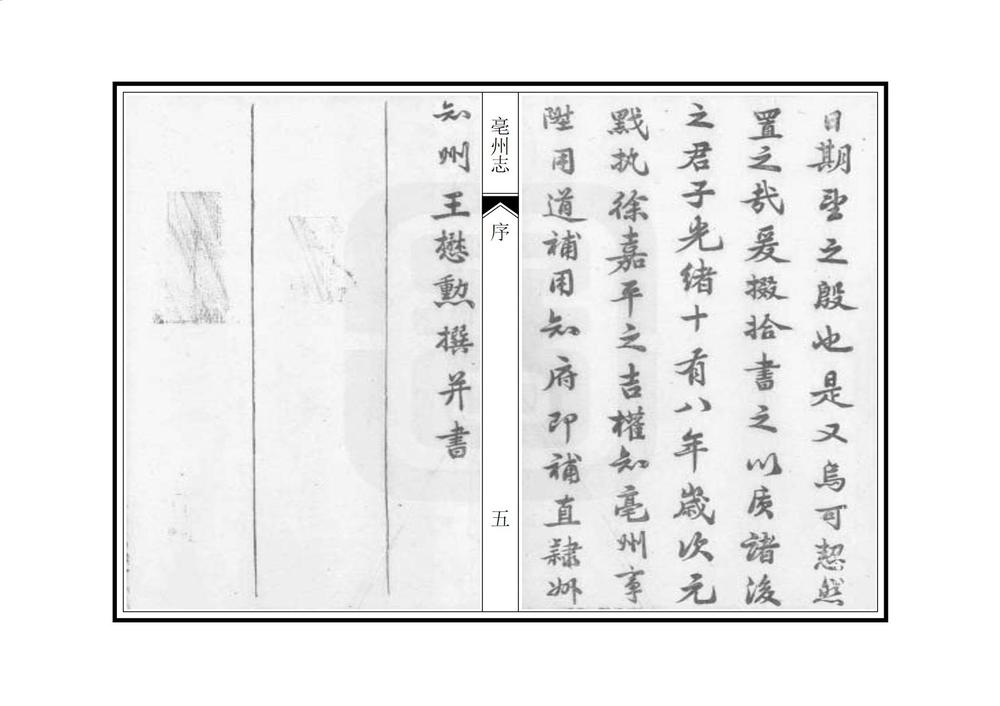 日期望之殷也是又烏可恝然
置之哉爰掇拾書之以质諸後
之君子光緒十有八年歲次元
黓执徐嘉平之吉權知亳州事
陞用道補用知府即補直隸州
亳州志
序
五
知州王懋勳撰并書